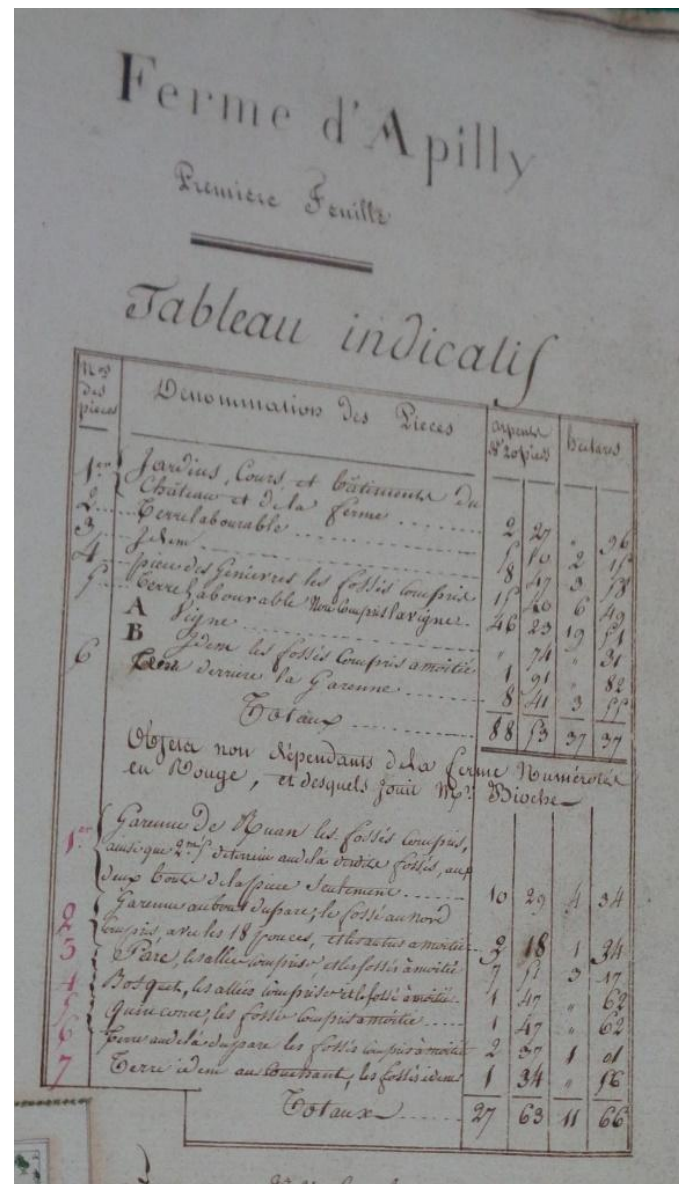 Ferme d'Apilly
Première Feuille
Tableau indicatif
Nos des pièces
Dénommination des Pieces
arpents de 20 pieds
hectares
1er Jardins, Cours et bâtiments du
Château et de la ferme 2 27 " 96
2 Terre labourable 5 10 2 15
3 Idem 8 47 3 58
4 pièce des Genievres les fossés compris 15 40 6 49
5 Terre labourable Non Compris la vigne 46 23 19 51
A Vigne " 74 " 31
B Idem les fossés Compris amoitié 1 91 " 82
6 derriere la Garenne 8 41 3 55
Totaux 88 53 37 37
Objets non dépendants de la ferme Numérotés
en Rouge, et desquels jouit Mr Bioche
1er Garenne De Ruan les fossés compris,
ainsi que 2 m 5 de terrein audelà desdits fossés, aux
deux bouts de la piece Seulement 10 29 4 34
2 Garenne au bout du parc, le fossé au Nord
compris, avec les 18 pouces, et les autres amoitié 3 18 1 34
3 Parc, les allées comprises, et les fossés à moitié 7 51 3 17
4 Bosquet, les allées comprises et le fossé à moitié 1 47 " 62
5 Quinconce, les fossés Compris amoitié 1 47 " 62
6 Terre audelà du parc les fossés compris à moitié 2 37 1 01
7 Terre idem au Couchant, les fossés idem 1 34 " 56
Totaux 27 63 11 66